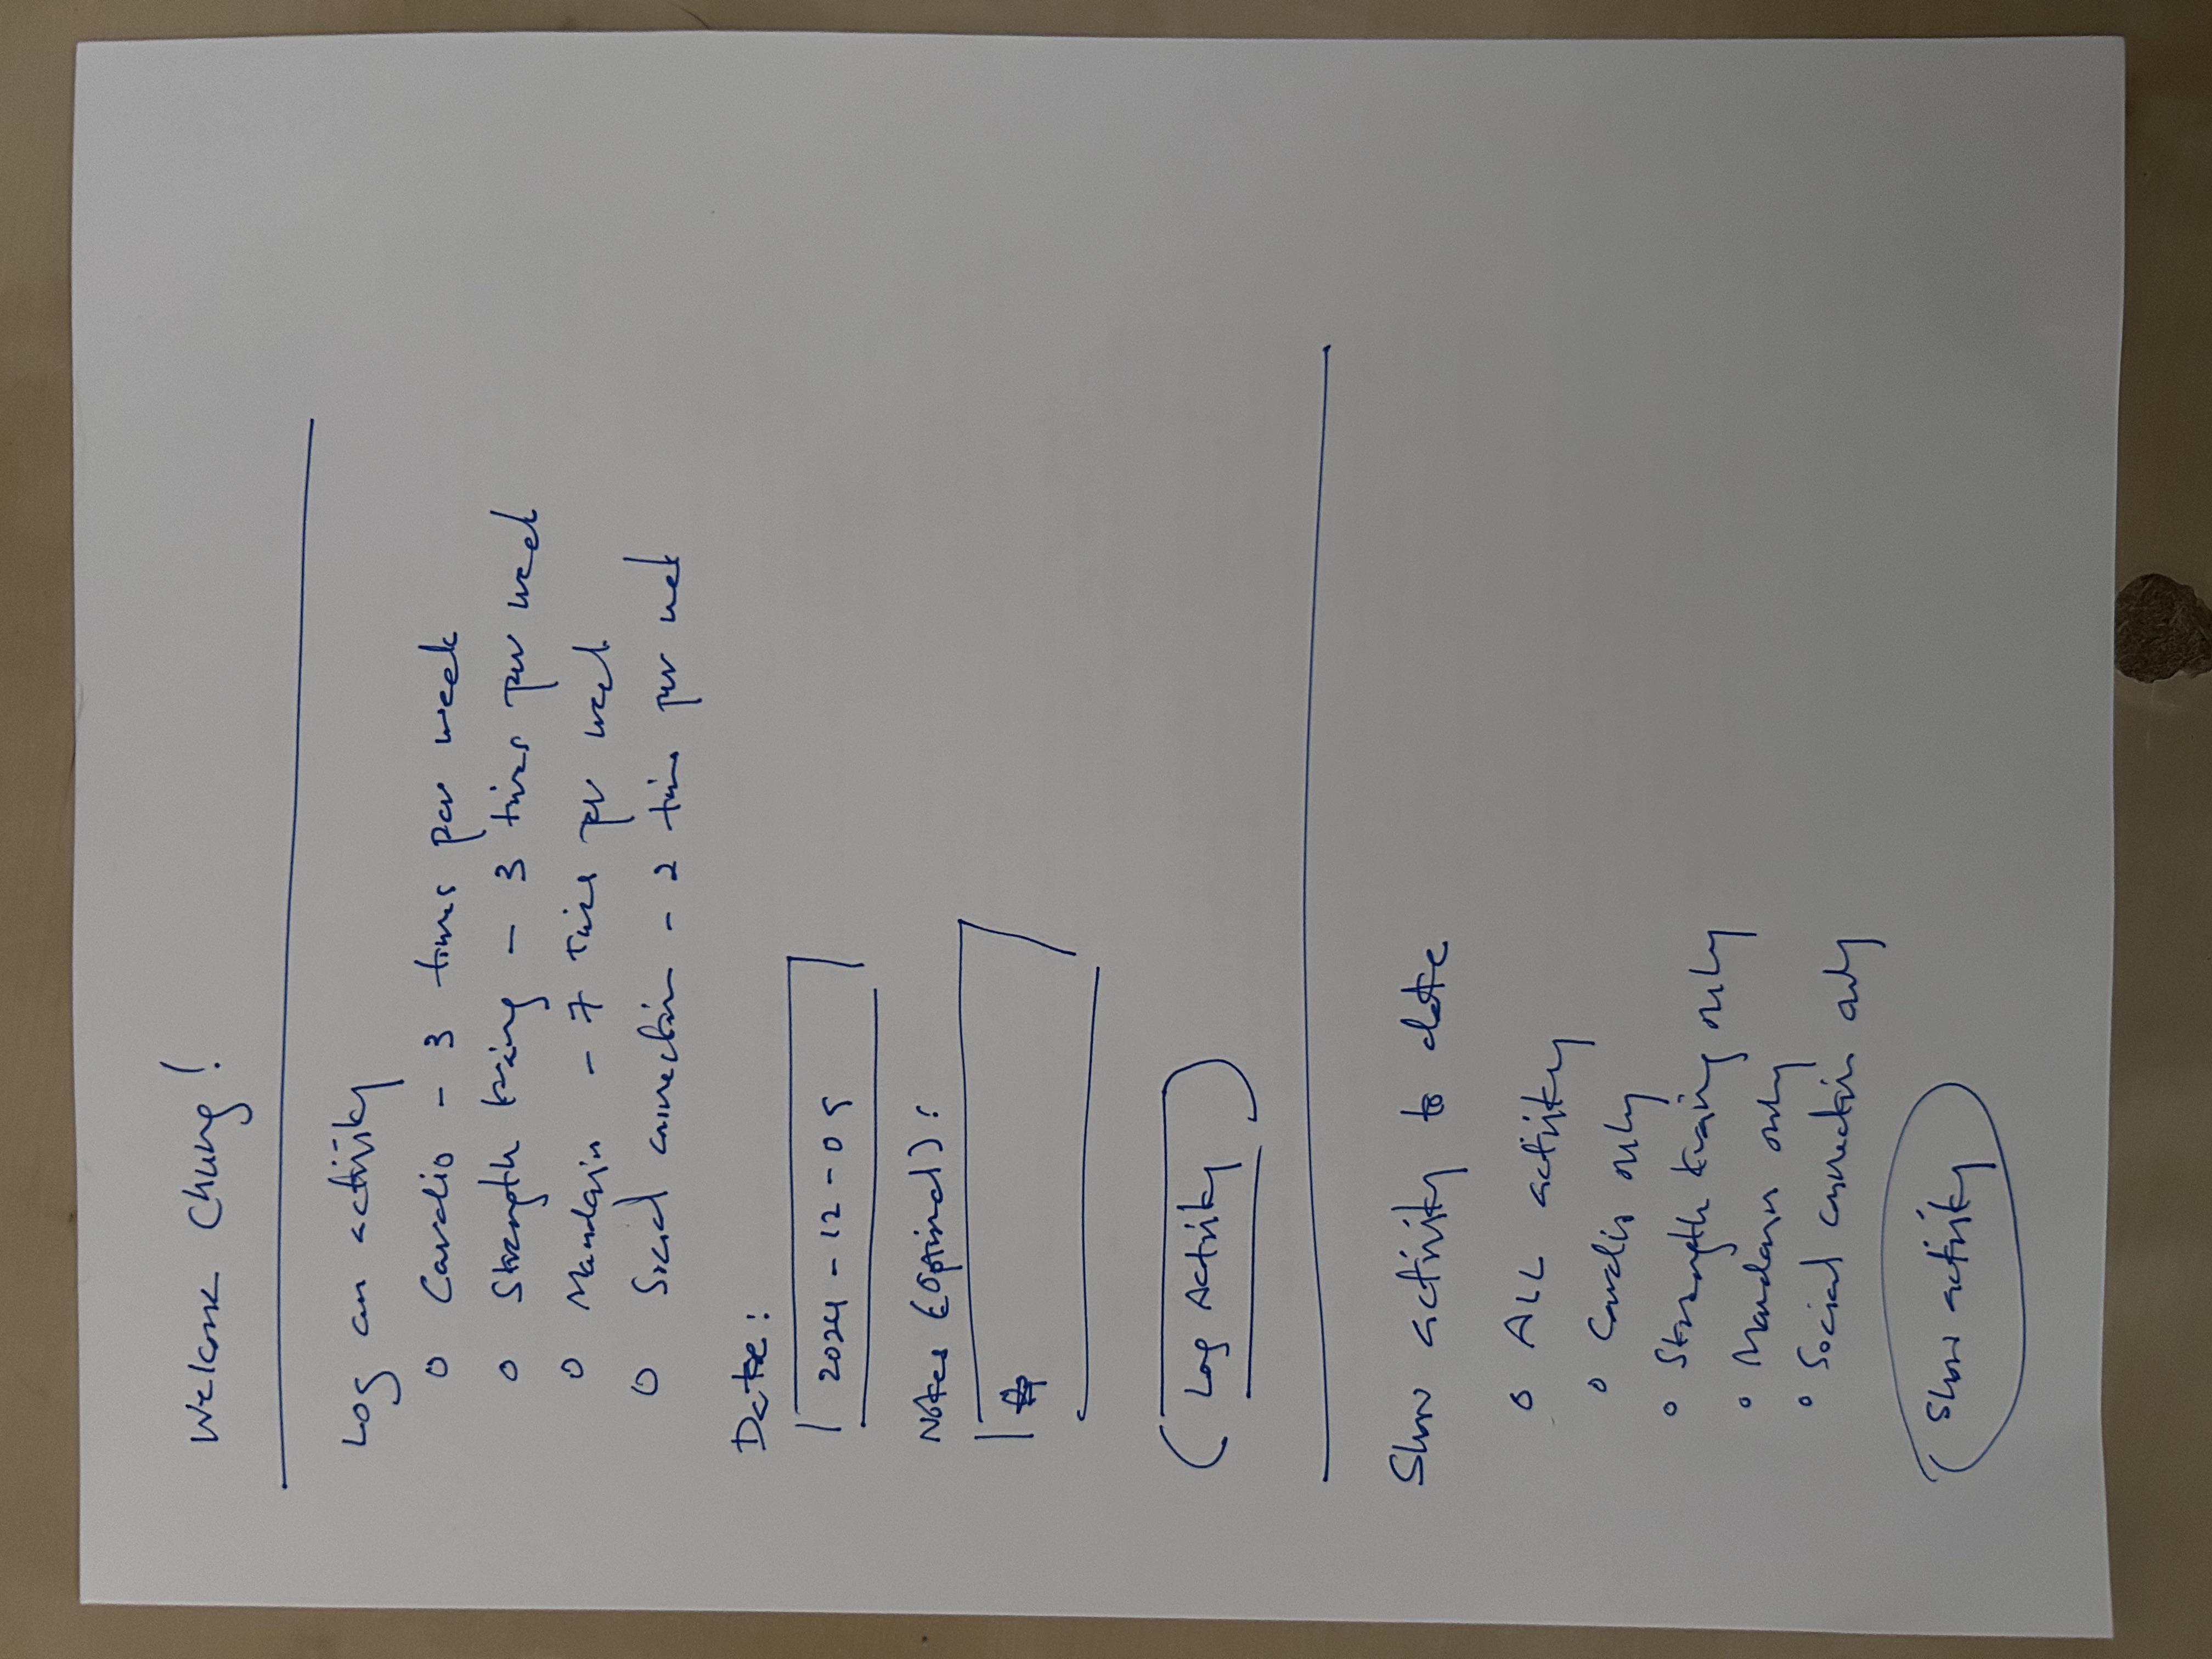 Welcome Chung!
Log an activity
Cardio - 3 times per week
Strength training - 3 times per week
Mandarin - 7 times per week
Social connection - 2 times per week
Date:
2024-12-09
Notes (Optional):
Log Activity
Show activity to date
ALL activity
Cardio only
Strength training only
Mandarin only
Social connection only
Show activity